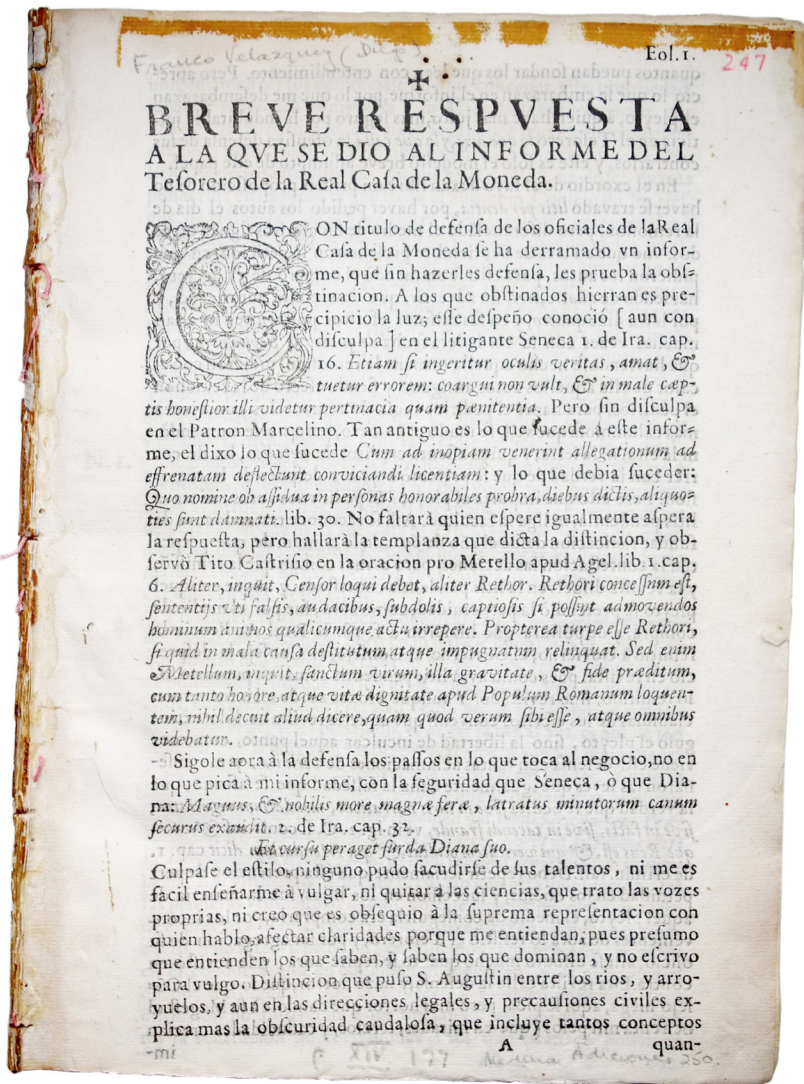 Franco Velazquez (Diego)
Fol. 1.
247
BREVE RESPVESTA
A LA QVE SE DIO AL INFORME DEL
Teſorero de la Real Caſa de la Moneda.
CON titulo de defenſa de los oficiales de la Real
Caſa de la Moneda ſe ha derramado vn infor-
me, que ſin hazerles defenſa, les prueba la obſ-
tinacion. A los que obſtinados hierran es pre-
cipicio la luz; eſſe deſpeño conoció [aun con
diſculpa] en el litigante Seneca 1. de Ira. cap.
16. Etiam ſi ingeritur oculis veritas, amat, &
tuetur errorem: coargui non vult, & in male cæp-
tis honeſtior illi videtur pertinacia quam pænitentia. Pero ſin diſculpa
en el Patron Marcelino. Tan antiguo es lo que ſucede à eſte infor-
me, el dixo lo que ſucede Cum ad inopiam venerint allegationum ad
effrenatam deflectunt conviciandi licentiam: y lo que debia ſuceder:
Quo nomine ob aſſidua in perſonas honorabiles probra, diebus dictis, aliquo-
ties ſunt damnati. lib. 30. No faltarà quien eſpere igualmente aſpera
la reſpueſta, pero hallarà la templanza que dicta la diſtincion, y ob-
ſervò Tito Caſtriſio en la oracion pro Metello apud Agel. lib 1. cap.
6. Aliter, inquit, Cenſor loqui debet, aliter Rethor. Rethori conceſſum eſt,
ſententijs vti falſis, audacibus, ſubdolis, captioſis ſi poſſint ad movendos
hominum animos qualicumque actu irrepere. Propterea turpe eſſe Rethori,
ſi quid in mala cauſa deſtitutum, atque impugnatum relinquat. Sed enim
Metellum, inquit, ſanctum virum, illa gravitate, & fide præditum,
cum tanto honore, atque vitæ dignitate apud Populum Romanum loquen-
tem, nihil decuit aliud dicere, quam quod verum ſibi eſſe, atque omnibus
videbatur.
Sigole aora à la defenſa los paſſos en lo que toca al negocio, no en
lo que pica à mi informe, con la ſeguridad que Seneca, ò que Dia-
na: Magnus, & nobilis more magnæ feræ, latratus minutorum canum
ſecurus exaudit. 2. de Ira. cap. 32.
Et curſu peraget ſurda Diana ſuo.
Culpaſe el eſtilo, ninguno pudo ſacudirſe de ſus talentos, ni me es
facil enſeñarme à vulgar, ni quitar à las ciencias, que trato las vozes
proprias, ni creo que es obſequio à la ſuprema repreſentacion con
quien hablo, afectar claridades porque me entiendan, pues preſumo
que entienden los que ſaben, y ſaben los que dominan, y no eſcrivo
para vulgo. Diſtincion que puſo S. Auguſtin entre los rios, y arro-
yuelos, y aun en las direcciones legales, y precauſiones civiles ex-
plica mas la obſcuridad caudaloſa, que incluye tantos conceptos
A quan-
XIV 177 Medina Adiciones 250.